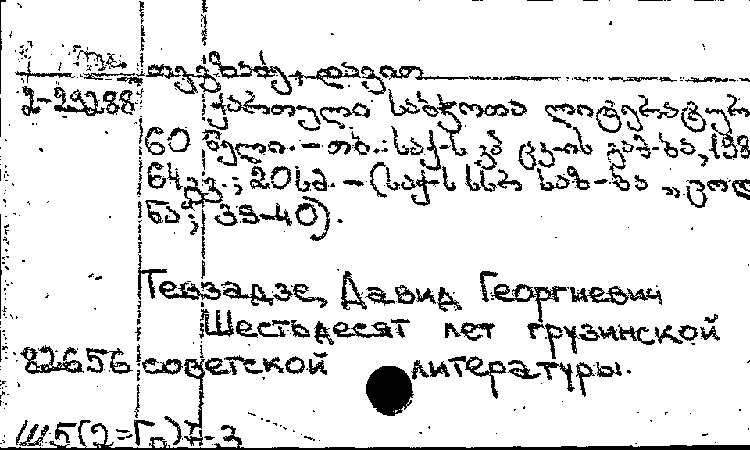 თევზაძე, დავით
2-29288 ქართული საბჭოთა ლიტერატურ
60 წელი. – თბ.: საქ-ს კპ ცკ-ის გამ-ბა, 198
64გვ.; 20სმ. – (საქ-ს სსრ საზ-ბა „ცოდ
ნა"; 39-40).
Тевзадзе, Давид Георгиевич
Шестьдесят лет грузинской
82656 советской литературы.
Ш5(2=Гр)7-3